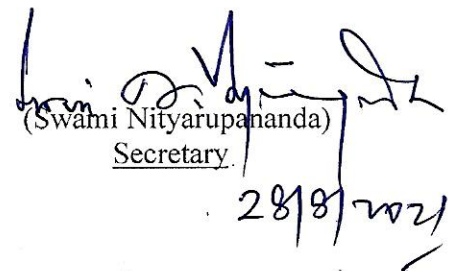 (Swami Nityarupananda)
Secretary
28/8/2021